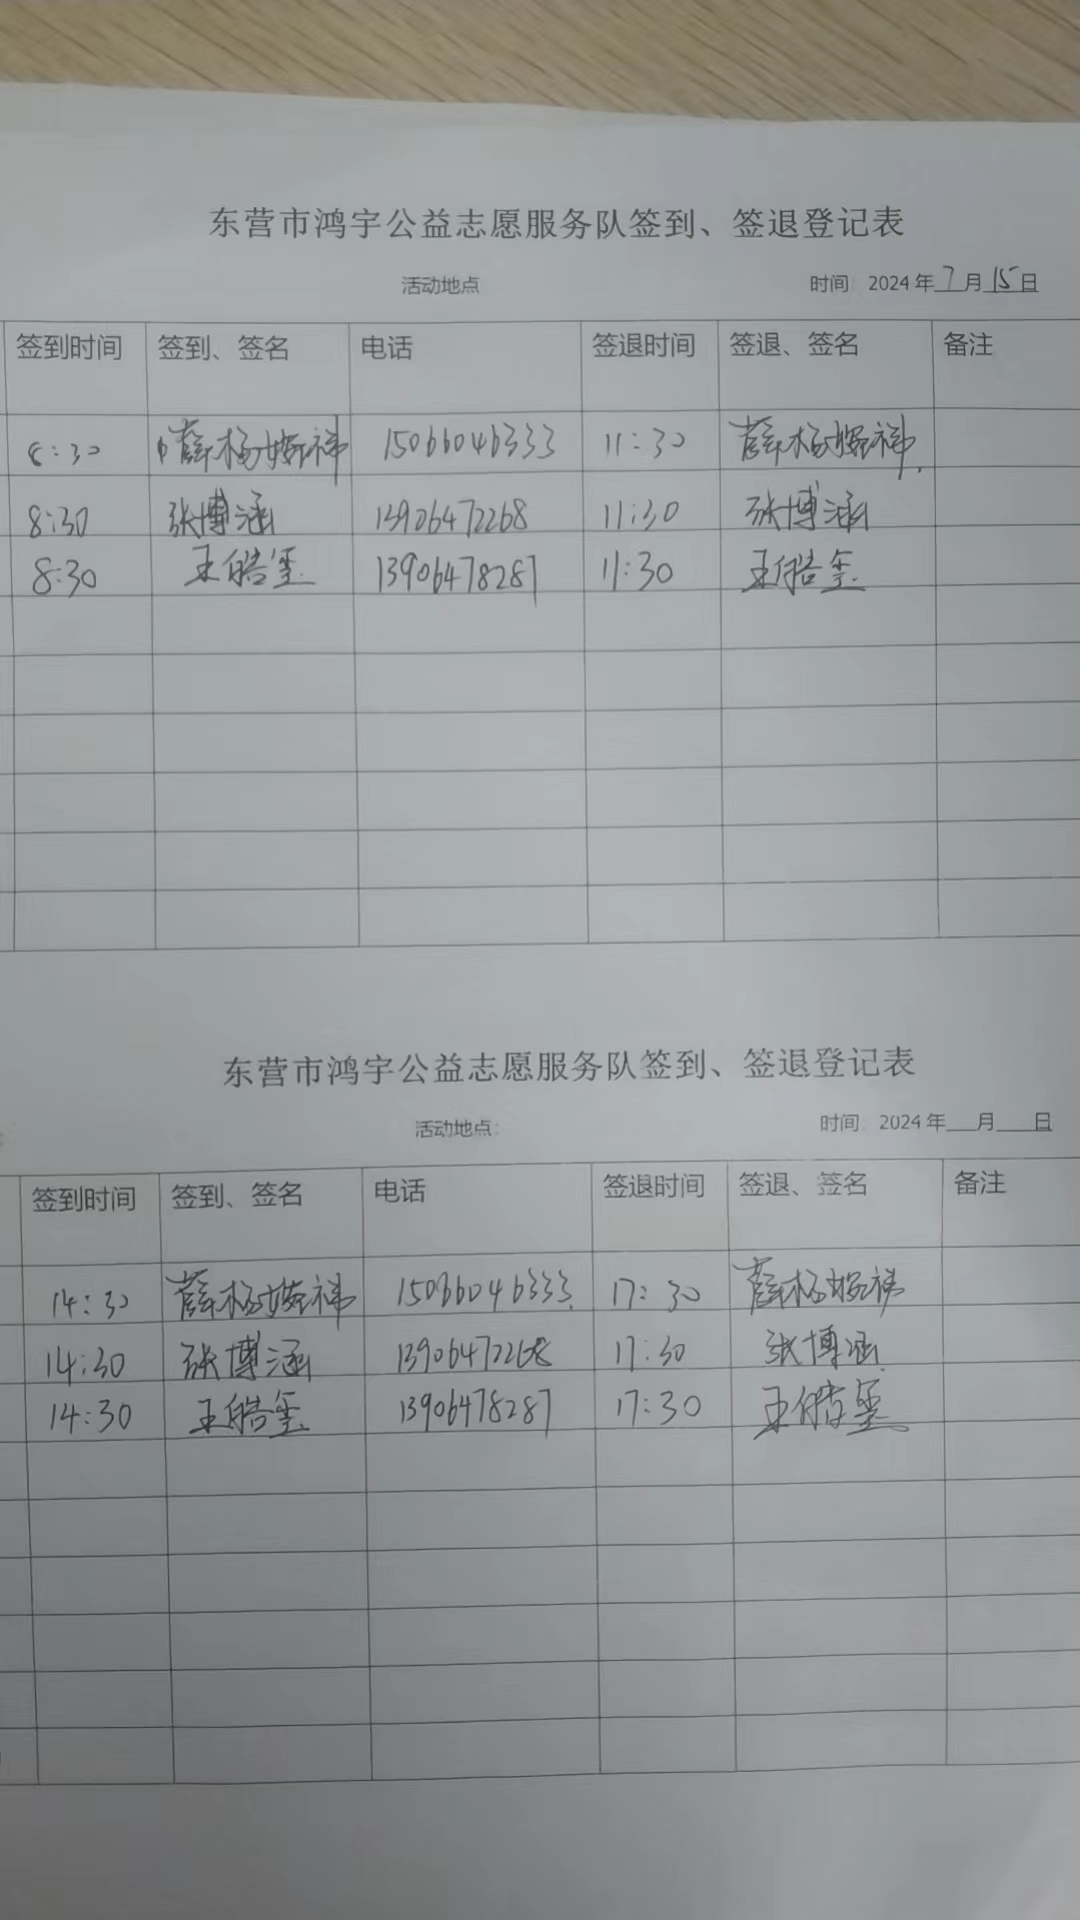 东营市鸿宇公益志愿服务队签到、签退登记表
活动地点 时间: 2024年7月15日
签到时间 签到、签名 电话 签退时间 签退、签名 备注
8:30 薛杨婉祎 15066046333 11:30 薛杨婉祎
8:30 张博涵 13906472268 11:30 张博涵
8:30 王皓玺 13906478287 11:30 王皓玺
东营市鸿宇公益志愿服务队签到、签退登记表
活动地点: 时间: 2024年___月___日
签到时间 签到、签名 电话 签退时间 签退、签名 备注
14:30 薛杨婉祎 15066046333 17:30 薛杨婉祎
14:30 张博涵 13906472268 17:30 张博涵
14:30 王皓玺 13906478287 17:30 王皓玺